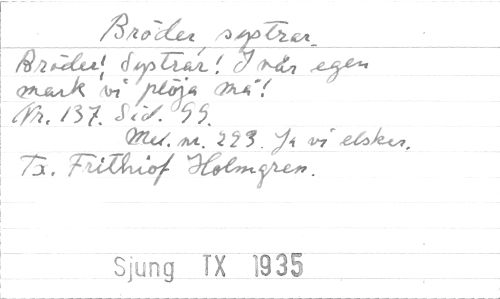 Bröder, systrar.
Bröder! Systrar! I vår egen
mark vi plöja må!
Nr. 137. Sid. 99.
Mel. nr. 223. Ja vi elsker.
Tx. Frithiof Holmgren.
Sjung TX 1935